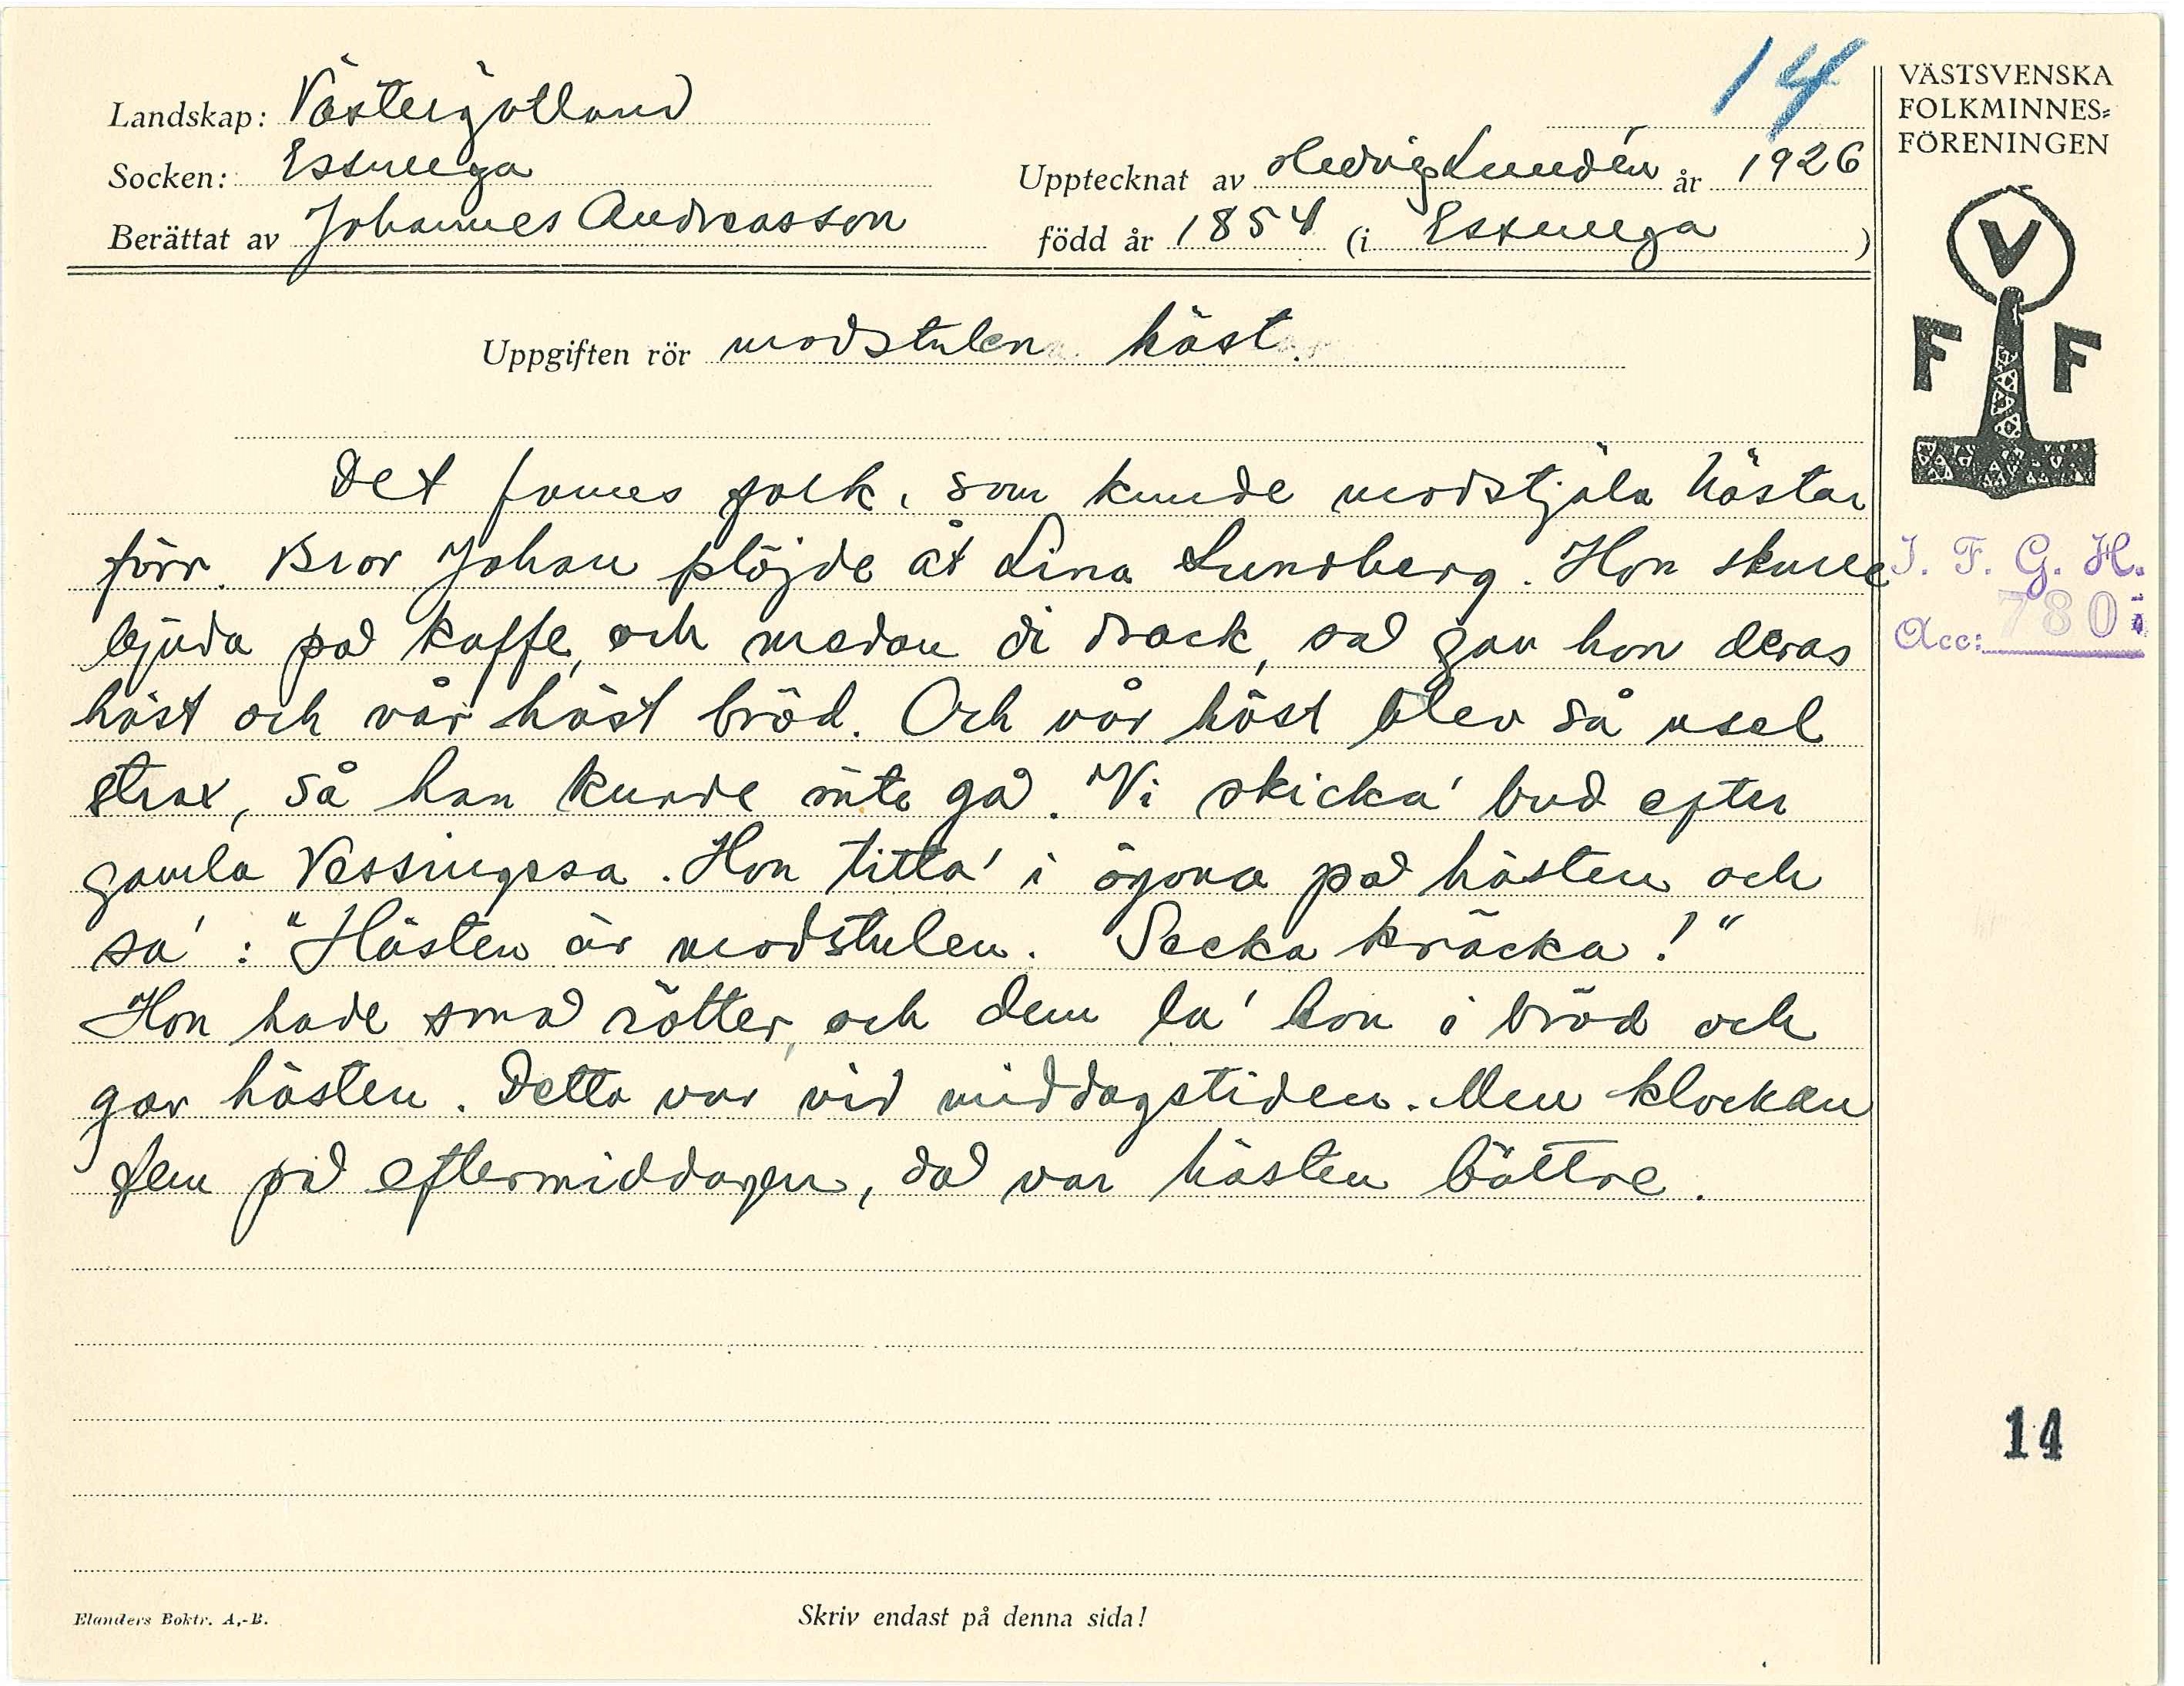 14
VÄSTSVENSKA
FOLKMINNES=
FÖRENINGEN
Landskap: Västergötland
Socken: Essunga
Upptecknat av Hedvig Lundén år 1926
Berättat av Johannes Andreasson
född år 1854 (i Essunga)
V
F F
Uppgiften rör modstulen häst.
Det fanns folk, som kunde modstjäla hästar
förr. Bror Johan plöjde åt Lina Lundberg. Hon skulle
bjuda på kaffe, och medan di drack, så gav hon deras
häst och vår häst bröd. Och vår häst blev så usel
strax, så han kunde inte gå. Vi skicka' bud efter
gamla Vessingssa. Hon titta' i ögona på hästen och
sa': "Hästen är modstulen. Secka kräcka!"
Hon hade små rötter, och dem la' hon i bröd och
gav hästen. Detta var vid middagstiden. Men klockan
fem på eftermiddagen, då var hästen bättre.
I. F. G. H.
Acc: 780
14
Elanders Boktr. A.-B.
Skriv endast på denna sida!